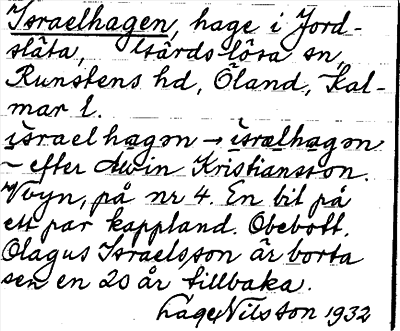 Israelhagen, hage i Jord-
släta, Gärdslösa sn,
Runstens hd, Öland, Kal-
mar l.
israelhagən → isrælhagən
~ efter Kristiansson.
på nr 4. En bit på
ett par kappland. Obebott.
Olagus Israelsson är borta
sen en 20 år tillbaka.
Lage Nilsson 1932